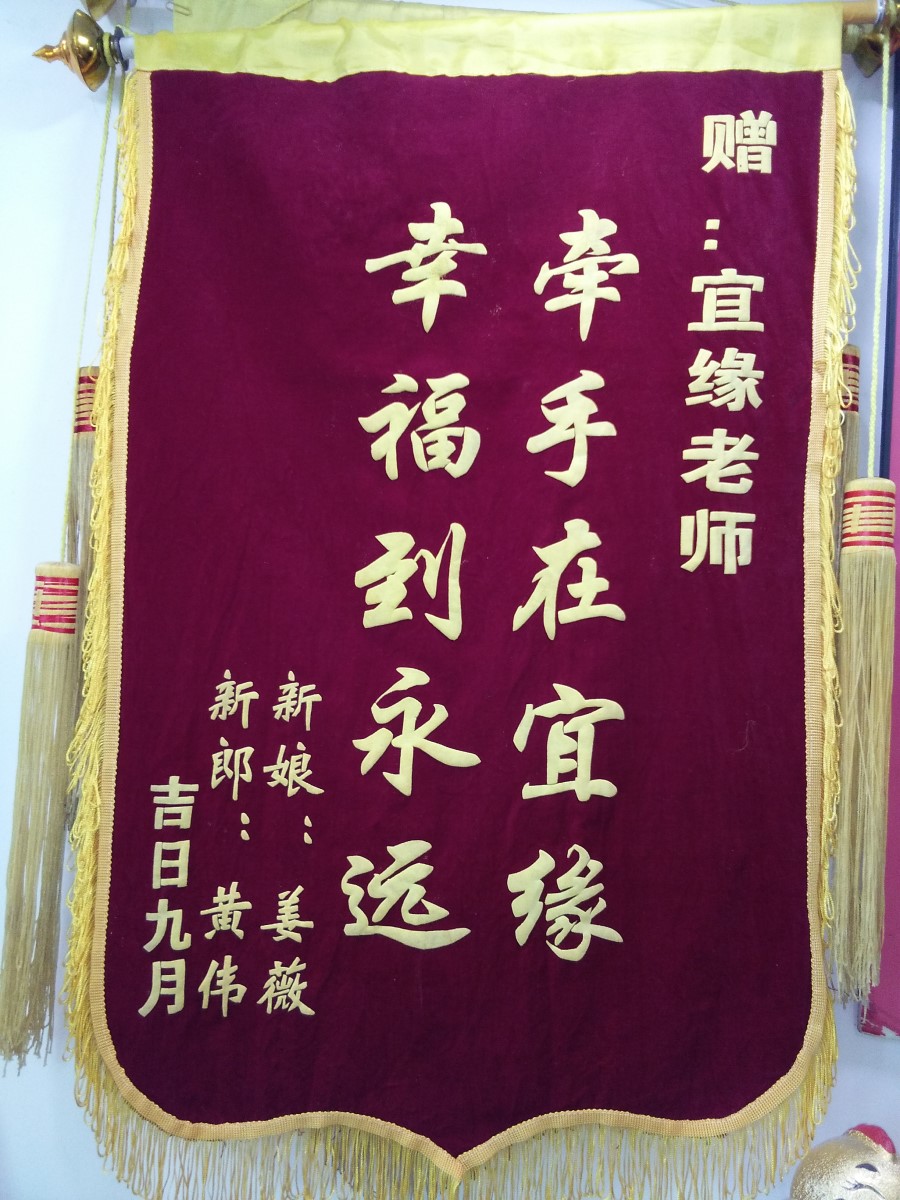 赠：宜缘老师
牵手在宜缘
幸福到永远
新娘：姜薇
新郎：黄伟
吉日九月